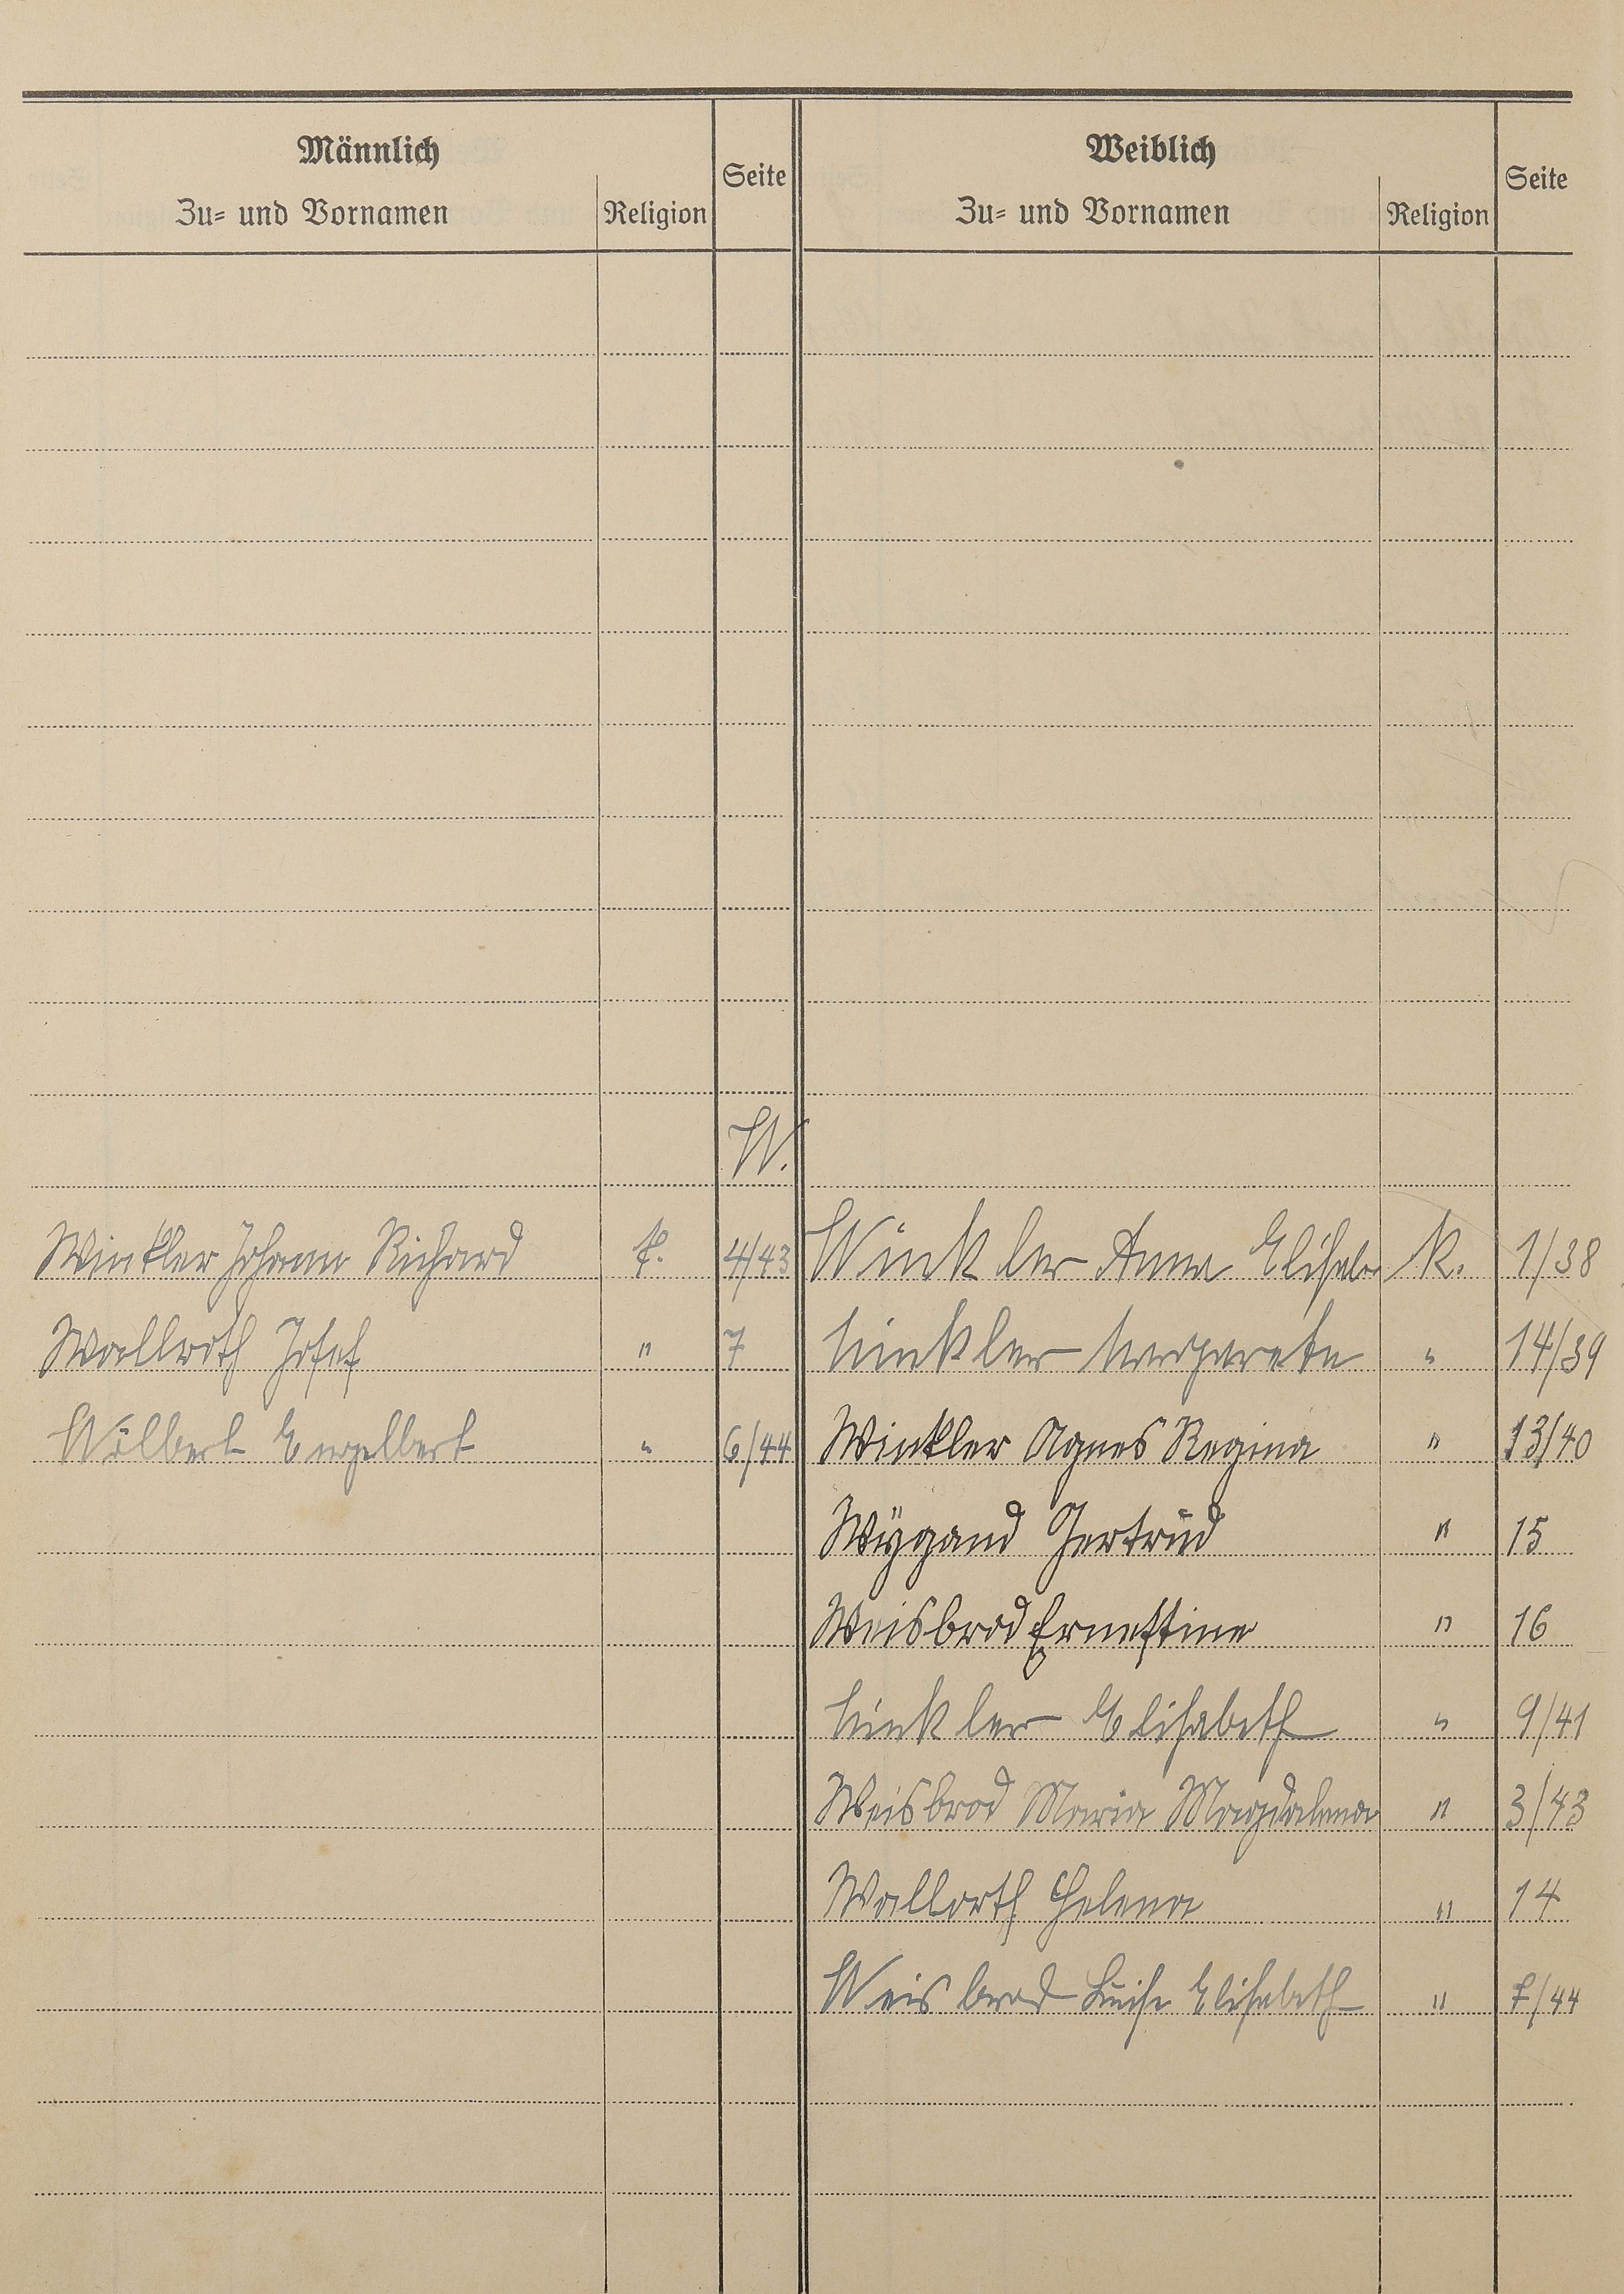 Männlich
Zu- und Vornamen
Religion
Seite
Weiblich
Zu- und Vornamen
Religion
Seite
W.
Winkler Johann Richard k. 4/43 Winkler Anna Elisab. K. 1/38
Wallroth Josef " 7 Winkler Margareta " 14/39
Wölbert Engelbert " 6/44 Winkler Agnes Regina " 13/40
Wygand Gertrud " 15
Weisbrod Ernestine " 16
Winkler Elisabeth " 9/41
Weisbrod Maria Magdalena " 3/43
Wallorth Helena " 14
Weisbrod Luise Elisabeth " 7/44